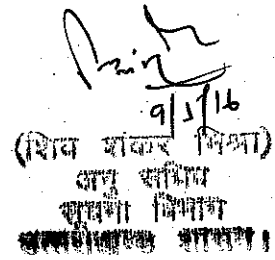 9/5/16
(शिव शंकर मिश्रा)
अनु सचिव
सूचना विभाग
शासन।